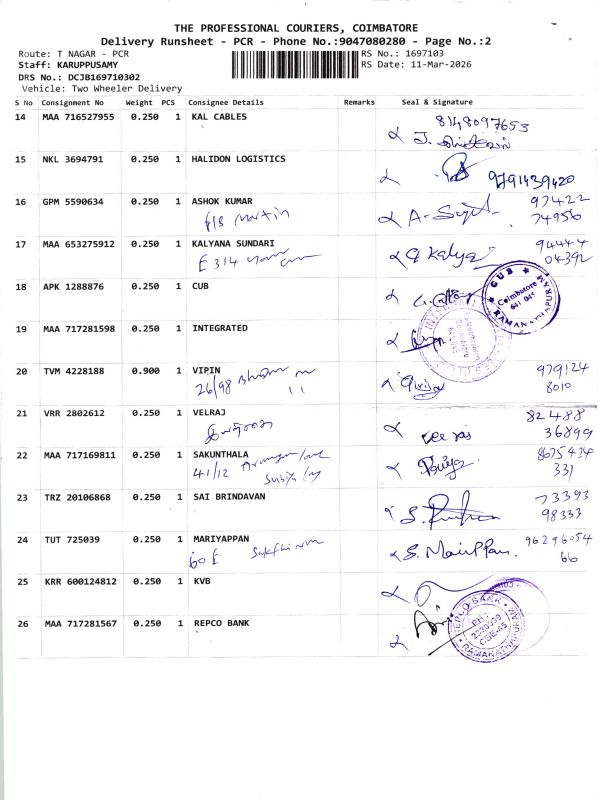 THE PROFESSIONAL COURIERS, COIMBATORE
Delivery Runsheet - PCR - Phone No.:9047080280 - Page No.:2
Route: T NAGAR - PCR RS No.: 1697103
Staff: KARUPPUSAMY RS Date: 11-Mar-2026
DRS No.: DCJB169710302
Vehicle: Two Wheeler Delivery
S No Consignment No Weight PCS Consignee Details Remarks Seal & Signature
14 MAA 716527955 0.250 1 KAL CABLES 8148097653
15 NKL 3694791 0.250 1 HALIDON LOGISTICS 9791439420
16 GPM 5590634 0.250 1 ASHOK KUMAR 97422
Martin 74956
17 MAA 653275912 0.250 1 KALYANA SUNDARI Kalya 94444
E 314 04392
18 APK 1288876 0.250 1 CUB
CUB
Coimbatore
641 045
RAMANATHAPURAM
19 MAA 717281598 0.250 1 INTEGRATED
20 TVM 4228188 0.900 1 VIPIN 979124
26/98 8010
21 VRR 2802612 0.250 1 VELRAJ 82488
36899
22 MAA 717169811 0.250 1 SAKUNTHALA 8675434
41/12 331
23 TRZ 20106868 0.250 1 SAI BRINDAVAN 73393
98333
24 TUT 725039 0.250 1 MARIYAPPAN 96296054
60 E 66
25 KRR 600124812 0.250 1 KVB
26 MAA 717281567 0.250 1 REPCO BANK
REPCO BANK
CBE-45
RAMANATHAPURAM